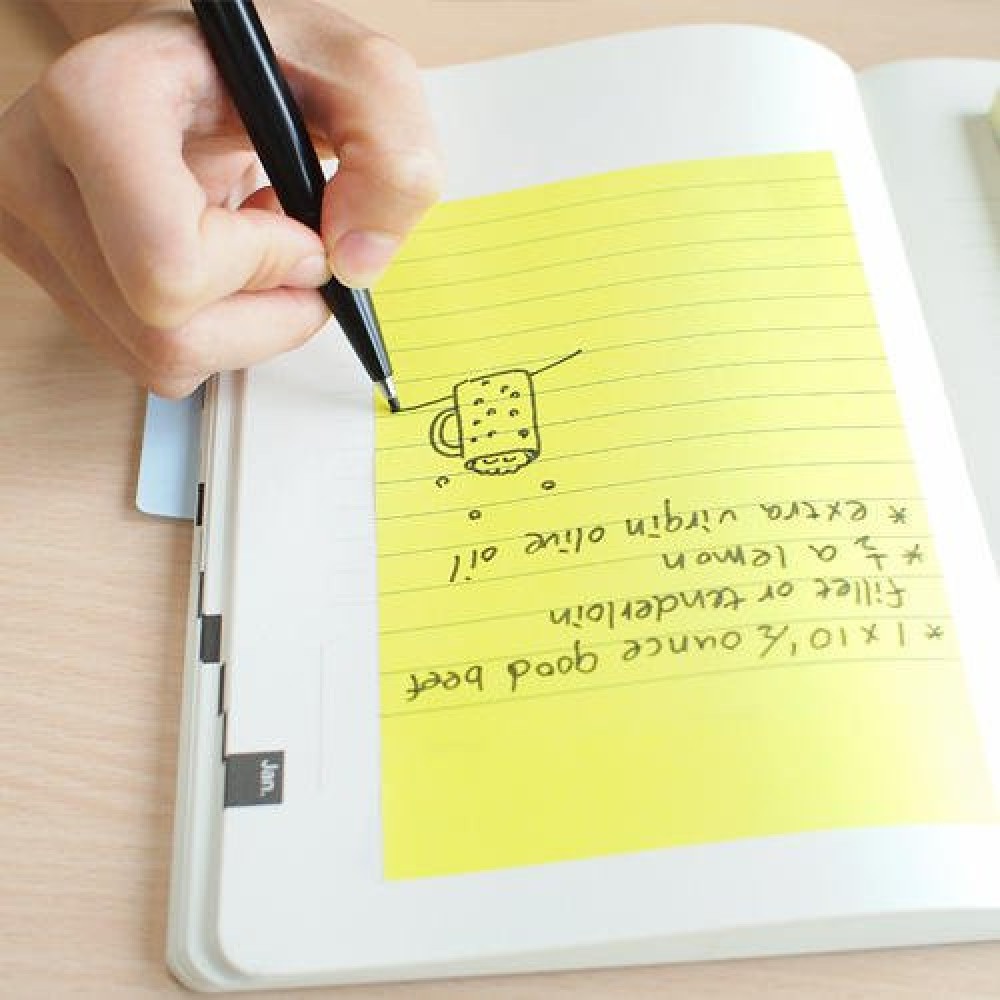 * 1 x 10 1/2 ounce good beef
fillet or tenderloin
* 1/2 a lemon
* extra virgin olive oil
Jan.